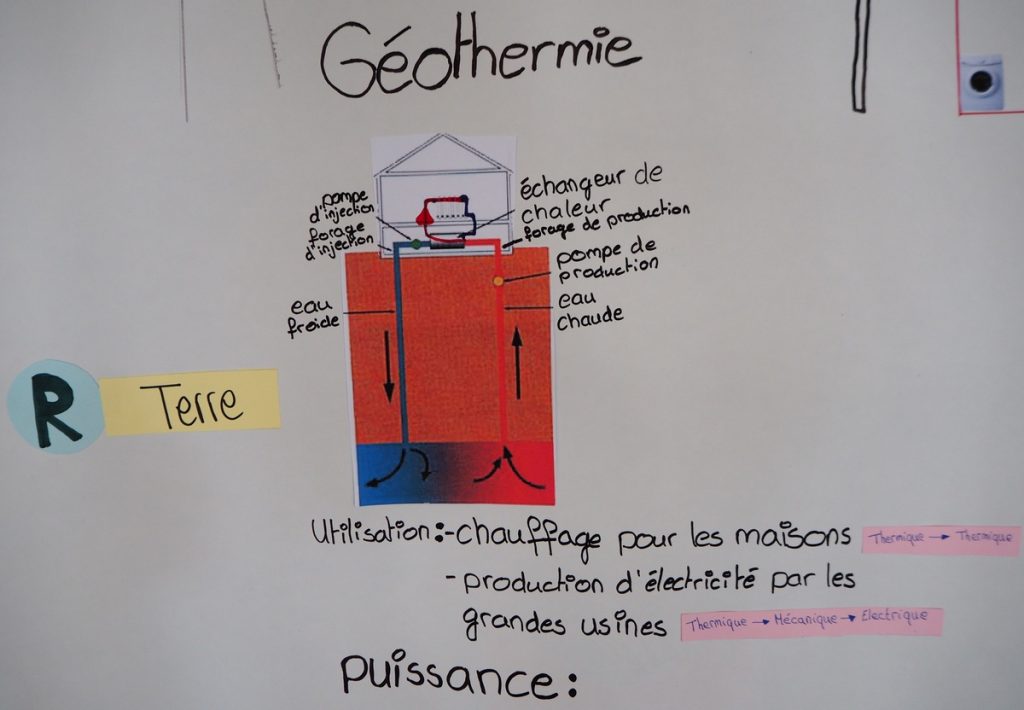 Géothermie
pompe
d'injection
forage
d'injection
échangeur de
chaleur
forage de production
pompe de
production
eau
froide
eau
chaude
R
Terre
Utilisation:-chauffage pour les maisons
Thermique → Thermique
-production d'électricité par les
grandes usines
Thermique → Mécanique → Electrique
Puissance: